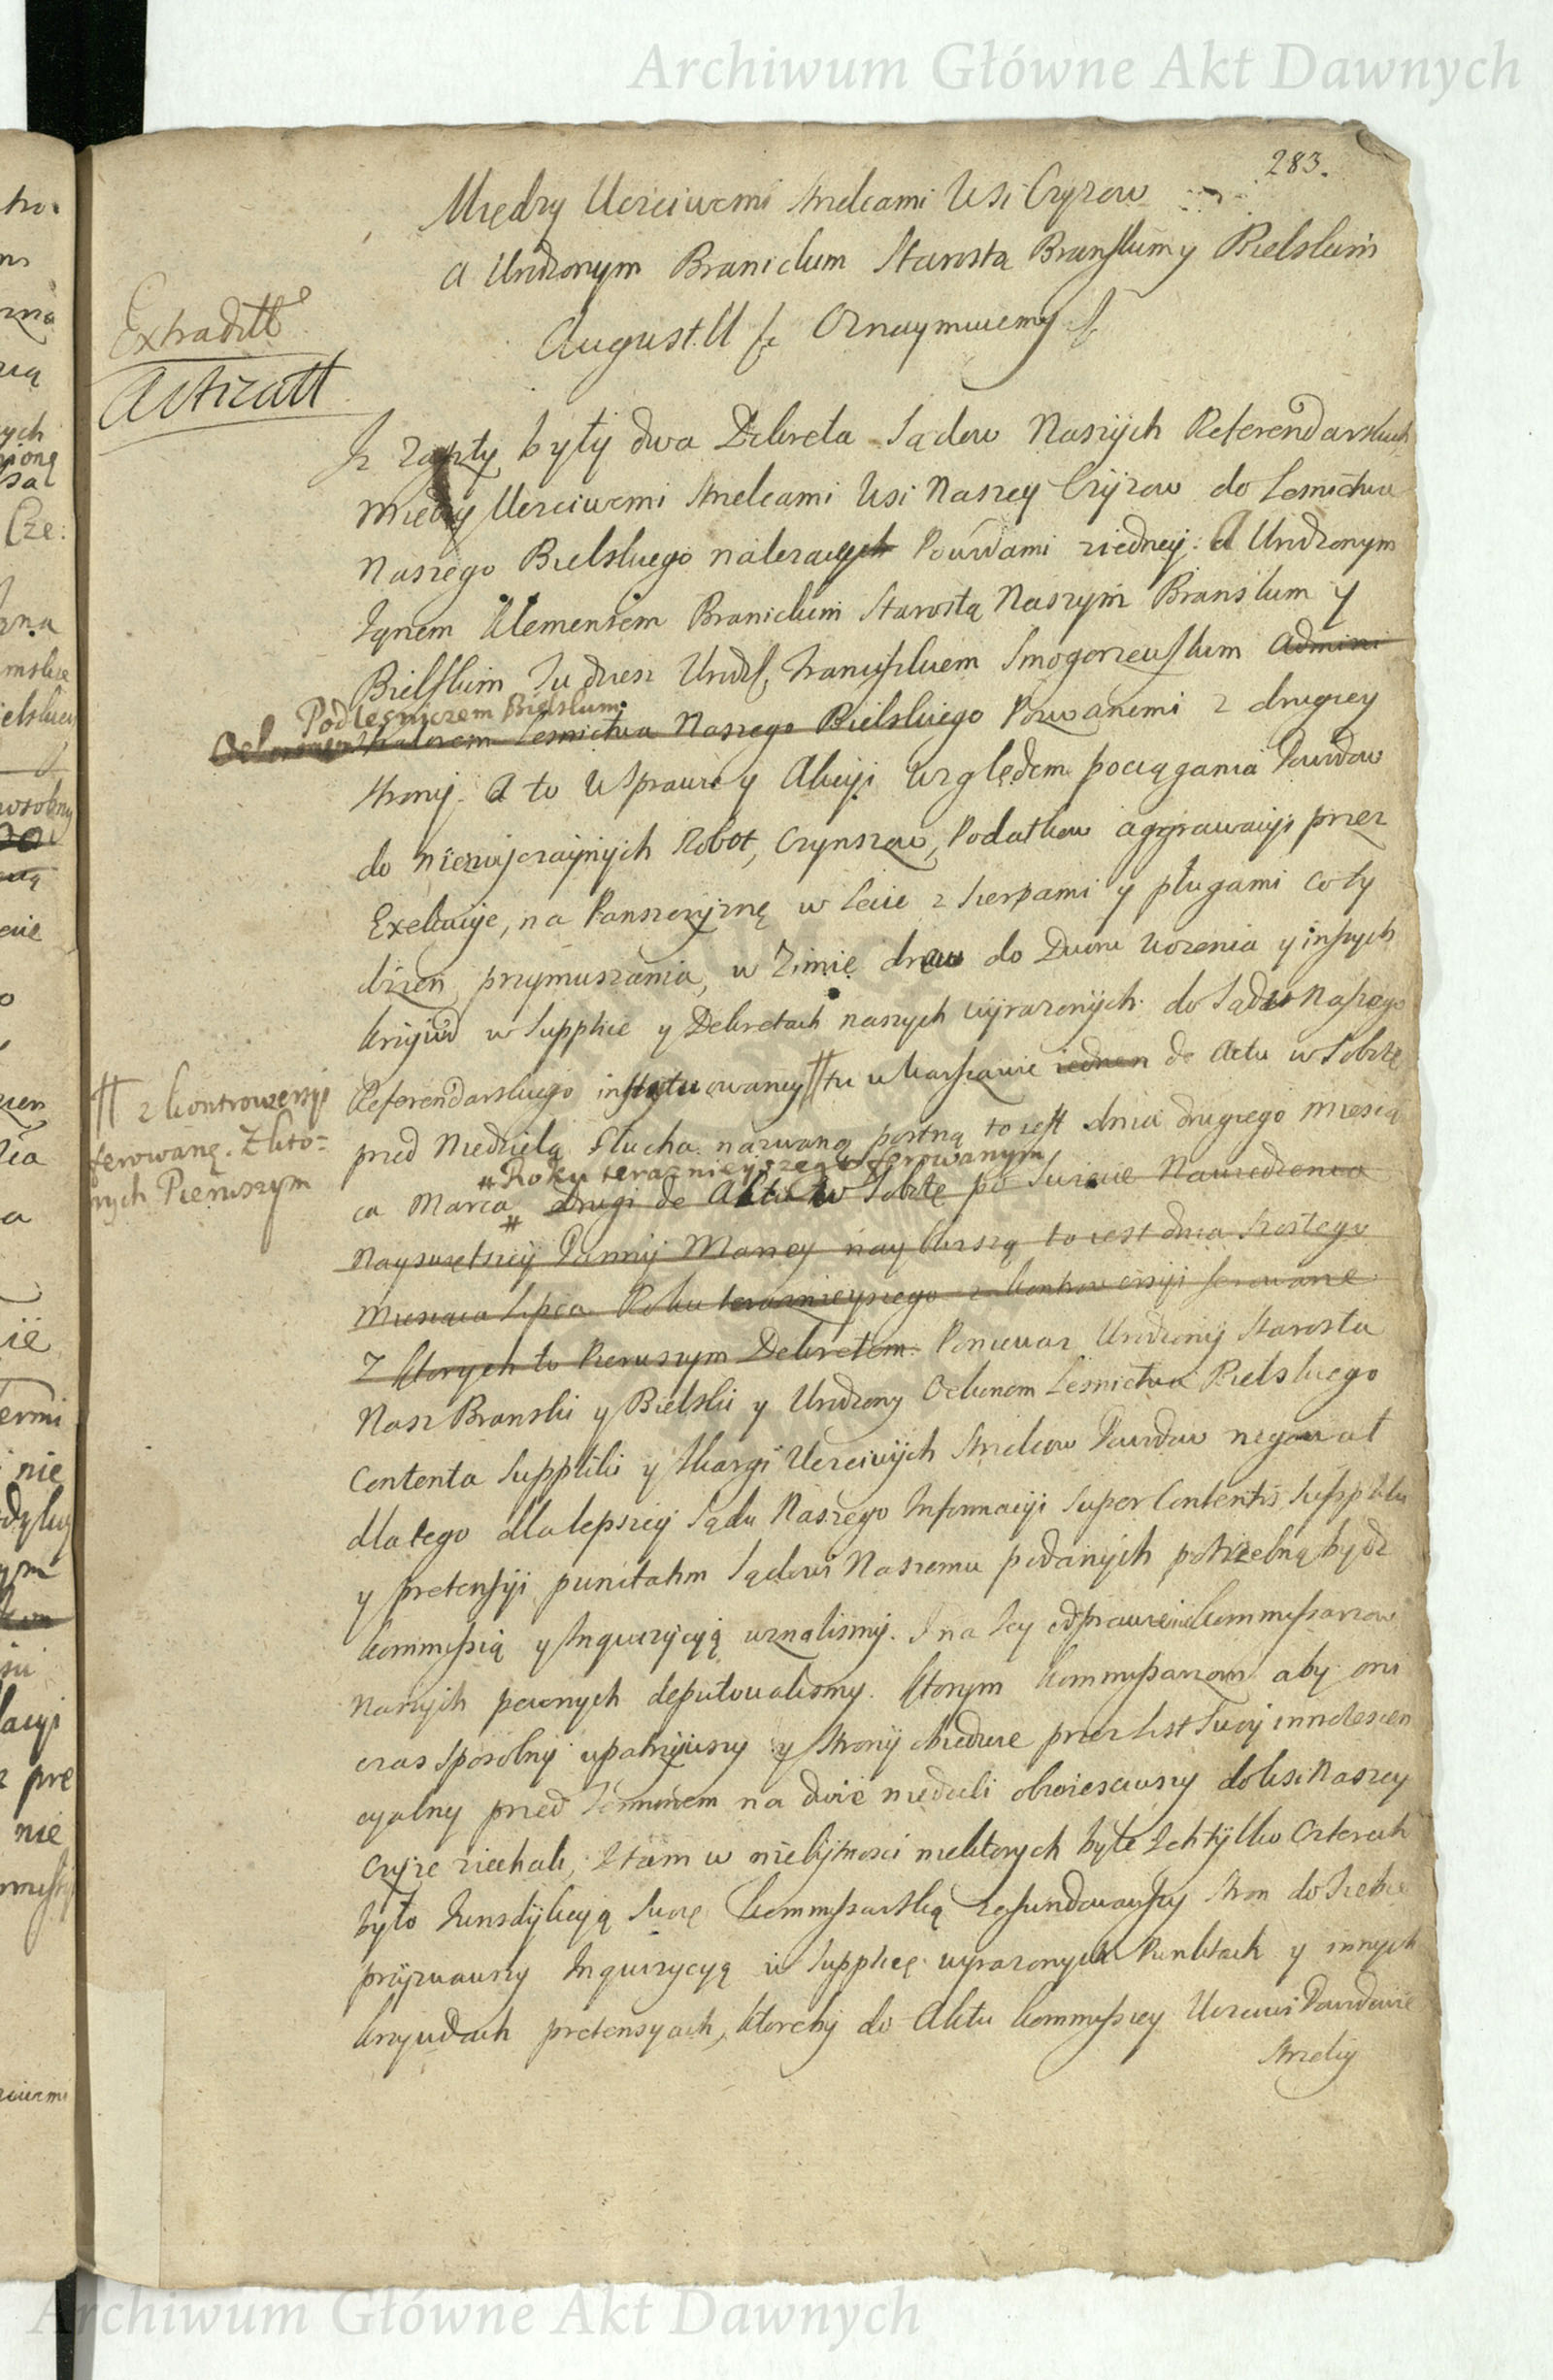 Archiwum Główne Akt Dawnych
283.
Między Uczciwemi Strzelcami Wsi Czyżow
a Urodzonym Branickim Starostą Branskim y Bielskim
August II Oznaymuiemy
Extraditt
Acticatt
Iz zaszły były dwa Dekreta Sądow Naszych Referendarskich
między Uczciwemi Strzelcami Wsi Naszey Czyżow do Lesnictwa
Naszego Bielskiego należących Powodami z iedney: A Urodzonym
Janem Klemensem Branickim Starostą Naszym Branskim y
Bielskim Tudziesz Urodz. Franciszkiem Smogorzewskim Admini
Podlesniczem Bielskim
stratorem Lesnictwa Naszego Bielskiego Pozwanemi z drugiey
strony. A to w Sprawie y Akcyi względem pociągania Powodow
do niezwyczaynych Robot, Czynszow, Podatkow agrawacyi przez
Exekucye, na Panszczyznę w Lecie z Sierpami y pługami cały
dzien przymuszania, w Zimie drew do Dworu wozenia y inszych
krzywd w Supplice y Dekretach naszych wyrazonych do Sądu Naszego
Referendarskiego instytuowaney # tu w Warszawie ieden de Actu w Sobotę
# z kontrowersyi
ferowane. Z kto=
rych Pierwszym
przed Niedzielą Głucha nazwaną postną to iest dnia drugiego miesią
# Roku teraznieyszego ferowanym
ca Marca # drugi de Actu w Sobotę po Swięcie Nawiedzenia
Nayswiętszey Panny Maryey nay bliszą to iest dnia szostego
Miesiąca Lipca Roku teraznieyszego z kontrowersyi ferowane
Z ktorych to Pierwszym Dekretem. Poniewaz Urodzony Starosta
Nasz Branski y Bielski y Urodzony Oekonom Lesnictwa Bielskiego
Contenta Suppliki y skargi Uczciwych Strzelcow Powodow negował
dlatego dla lepszey Sądu Naszego Informacyi Super Contentis Suppliki
y pretensyi punctatim Sądowi Naszemu podanych potrzebną bydz
kommissią y Inquizycyą uznalismy. I na tey odprawienie kommissarzow
Naszych pewnych deputowalismy. Ktorym kommissarzom aby oni
czas sposobny upatrzywszy y strony obiedwie przez List Swoy innotescen
cyalny przed Terminem na dwie niedzieli obwiesciwszy do Wsi Naszey
Czyże ziechali, I tam w niebytnosci niektorych byle Ich tylko czterech
było Jurisdykcyą Swoię kommissarską zafundowawszy stron do Siebie
przyzwawszy Inquizycyą w Supplice wyrazonych Punktach y innych
krzywdach pretensyach, ktoreby do Aktu kommissiey Ucziwi Powodowie
Strzelcy
Archiwum Główne Akt Dawnych